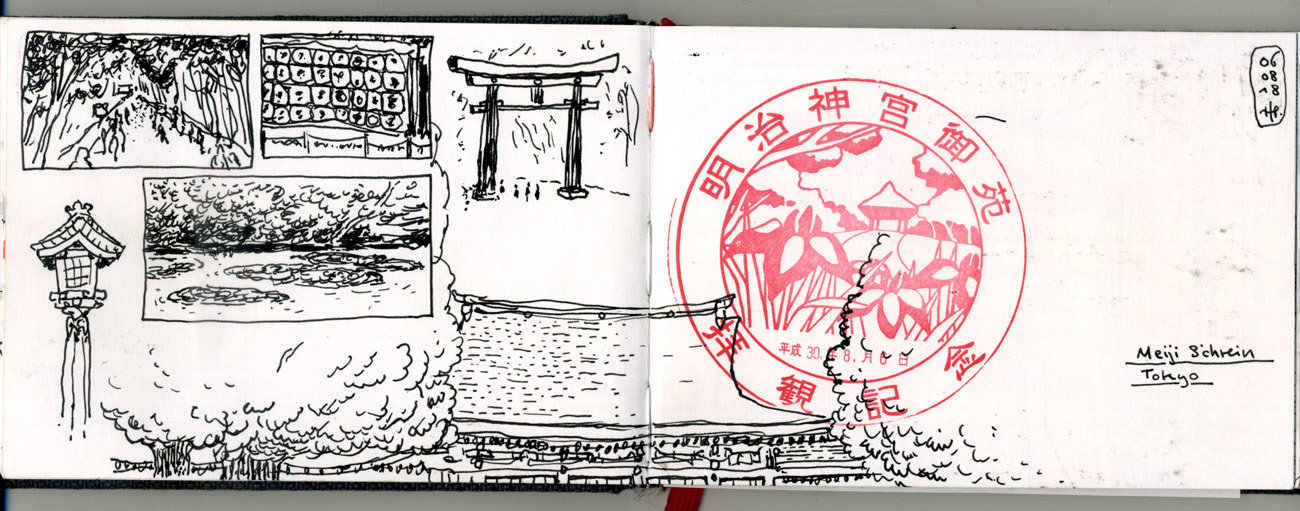 明治神宮御苑
平成30.年8.月6日
拝観記念
06
08
18
Meiji Schrein
Tokyo